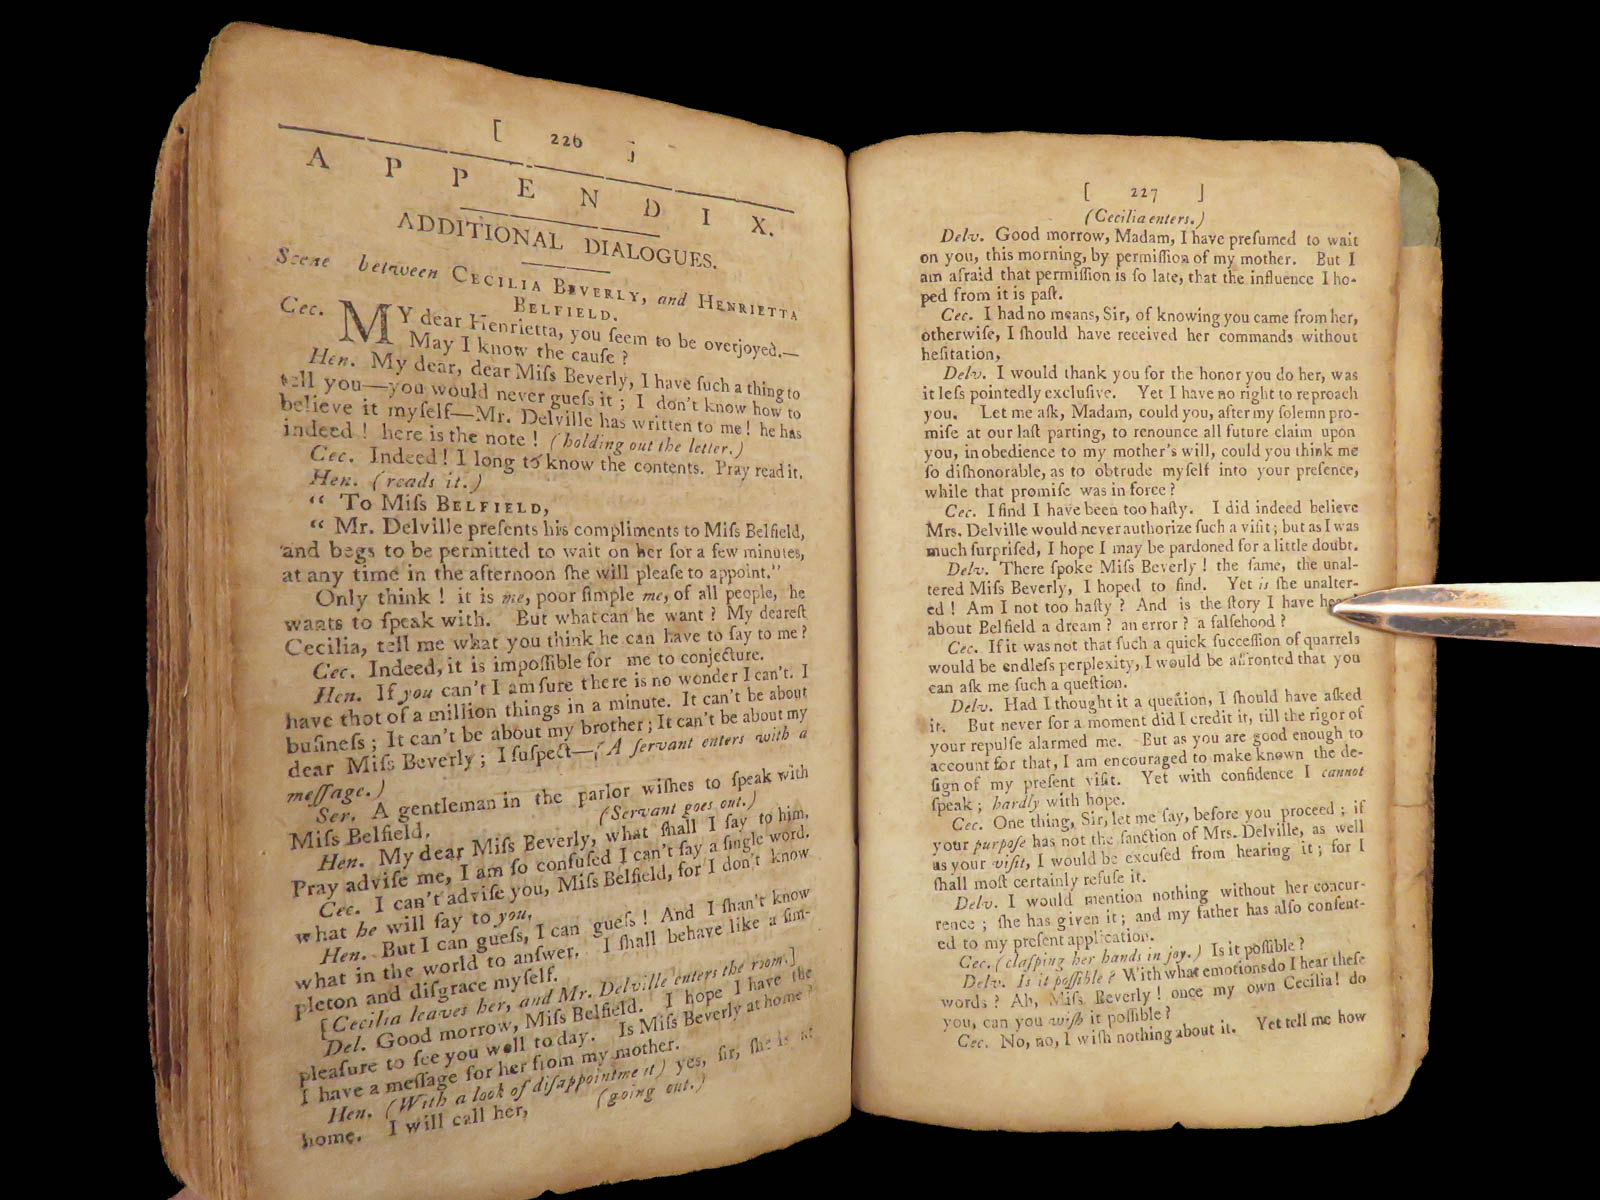 [ 226 ]
APPENDIX.
ADDITIONAL DIALOGUES.
Scene between CECILIA BEVERLY, and HENRIETTA
BELFIELD.
Cec. MY dear Henrietta, you ſeem to be overjoyed.—
May I know the cauſe ?
Hen. My dear, dear Miſs Beverly, I have ſuch a thing to
tell you—you would never gueſs it ; I don't know how to
believe it myſelf—Mr. Delville has written to me ! he has
indeed ! here is the note ! (holding out the letter.)
Cec. Indeed ! I long to know the contents. Pray read it.
Hen. (reads it.)
“ To Miſs BELFIELD,
“ Mr. Delville preſents his compliments to Miſs Belfield,
and begs to be permitted to wait on her for a few minutes,
at any time in the afternoon ſhe will pleaſe to appoint.”
Only think ! it is me, poor ſimple me, of all people, he
wants to ſpeak with. But what can he want ? My deareſt
Cecilia, tell me what you think he can have to ſay to me ?
Cec. Indeed, it is impoſſible for me to conjecture.
Hen. If you can't I am ſure there is no wonder I can't. I
have thot of a million things in a minute. It can't be about
buſineſs ; It can't be about my brother ; It can't be about my
dear Miſs Beverly ; I ſuſpect—(A ſervant enters with a
meſſage.)
Ser. A gentleman in the parlor wiſhes to ſpeak with
Miſs Belfield. (Servant goes out.)
Hen. My dear Miſs Beverly, what ſhall I ſay to him,
Pray adviſe me, I am ſo confuſed I can't ſay a ſingle word.
Cec. I can't adviſe you, Miſs Belfield, for I don't know
what he will ſay to you.
Hen. But I can gueſs, I can gueſs ! And I ſhan't know
what in the world to anſwer. I ſhall behave like a ſim-
pleton and diſgrace myſelf.
[Cecilia leaves her, and Mr. Delville enters the room.]
Del. Good morrow, Miſs Belfield. I hope I have the
pleaſure to ſee you well today. Is Miſs Beverly at home ?
I have a meſſage for her from my mother.
Hen. (With a look of diſappointment) yes, ſir, ſhe is at
home. I will call her, (going out.)
[ 227 ]
(Cecilia enters.)
Delv. Good morrow, Madam, I have preſumed to wait
on you, this morning, by permiſſion of my mother. But I
am afraid that permiſſion is ſo late, that the influence I ho-
ped from it is paſt.
Cec. I had no means, Sir, of knowing you came from her,
otherwiſe, I ſhould have received her commands without
heſitation,
Delv. I would thank you for the honor you do her, was
it leſs pointedly excluſive. Yet I have no right to reproach
you. Let me aſk, Madam, could you, after my ſolemn pro-
miſe at our laſt parting, to renounce all future claim upon
you, in obedience to my mother's will, could you think me
ſo diſhonorable, as to obtrude myſelf into your preſence,
while that promiſe was in force ?
Cec. I find I have been too haſty. I did indeed believe
Mrs. Delville would never authorize ſuch a viſit ; but as I was
much ſurpriſed, I hope I may be pardoned for a little doubt.
Delv. There ſpoke Miſs Beverly ! the ſame, the unal-
tered Miſs Beverly, I hoped to find. Yet is ſhe unalter-
ed ! Am I not too haſty ? And is the ſtory I have
about Belfield a dream ? an error ? a falſehood ?
Cec. If it was not that ſuch a quick ſucceſſion of quarrels
would be endleſs perplexity, I would be affronted that you
can aſk me ſuch a queſtion.
Delv. Had I thought it a queſtion, I ſhould have aſked
it. But never for a moment did I credit it, till the rigor of
your repulſe alarmed me. But as you are good enough to
account for that, I am encouraged to make known the de-
ſign of my preſent viſit. Yet with confidence I cannot
ſpeak ; hardly with hope.
Cec. One thing, Sir, let me ſay, before you proceed ; if
your purpoſe has not the ſanction of Mrs. Delville, as well
as your viſit, I would be excuſed from hearing it ; for I
ſhall moſt certainly refuſe it.
Delv. I would mention nothing without her concur-
rence ; ſhe has given it ; and my father has alſo conſent-
ed to my preſent application.
Cec. (claſping her hands in joy.) Is it poſſible ?
Delv. Is it poſſible ? With what emotions do I hear theſe
words ? Ah, Miſs Beverly ! once my own Cecilia ! do
you, can you wiſh it poſſible ?
Cec. No, no, I wiſh nothing about it. Yet tell me how